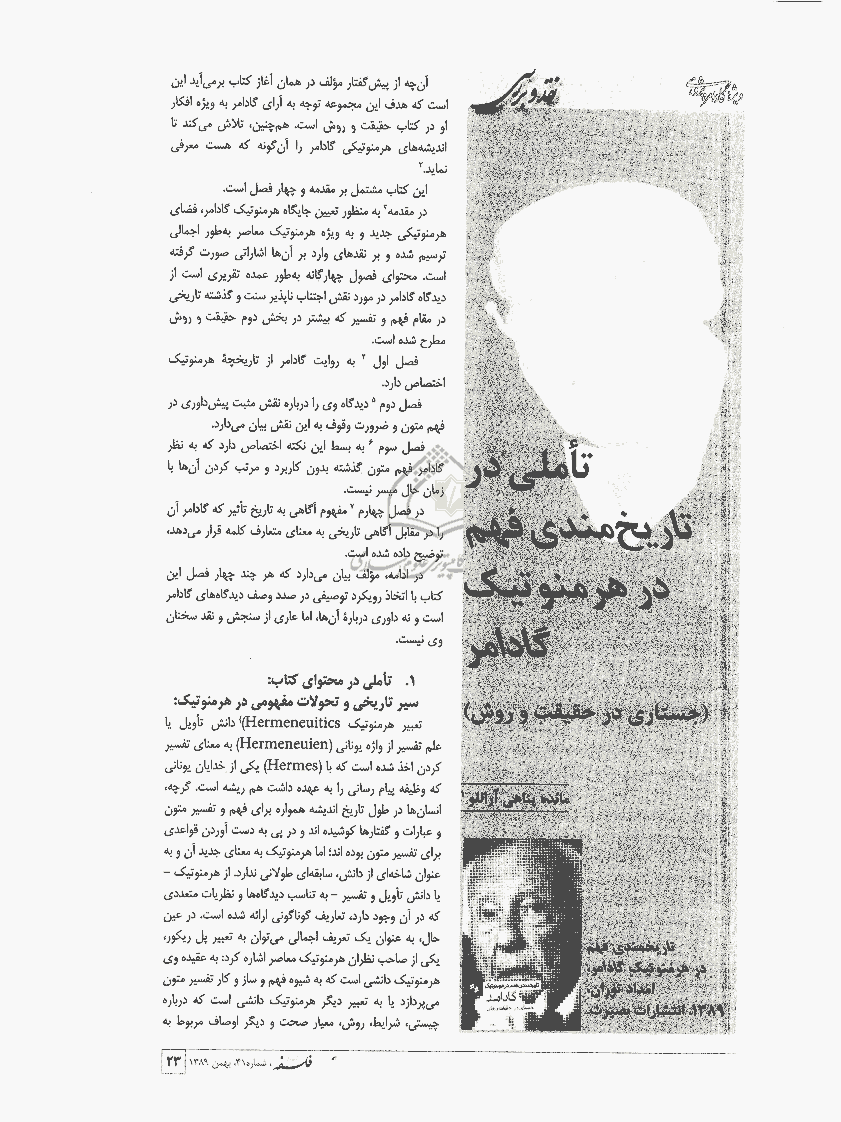 نقد و بررسی
تأملی در
تاریخ‌مندی فهم
در هرمنوتیک
گادامر
(جستاری در حقیقت و روش)
مائده پناهی آراللو ۱
تاریخمندی فهم
در هرمنوتیک گادامر،
امداد توران،
۱۳۸۹، انتشارات بصیرت
گادامر
آن‌چه از پیش‌گفتار مؤلف در همان آغاز کتاب برمی‌آید این
است که هدف این مجموعه توجه به آرای گادامر به ویژه افکار
او در کتاب حقیقت و روش است. هم‌چنین، تلاش می‌کند تا
اندیشه‌های هرمنوتیکی گادامر را آن‌گونه که هست معرفی
نماید.۲
این کتاب مشتمل بر مقدمه و چهار فصل است.
در مقدمه۳ به منظور تعیین جایگاه هرمنوتیک گادامر، فضای
هرمنوتیکی جدید و به ویژه هرمنوتیک معاصر به‌طور اجمالی
ترسیم شده و بر نقدهای وارد بر آن‌ها اشاراتی صورت گرفته
است. محتوای فصول چهارگانه به‌طور عمده تقریری است از
دیدگاه گادامر در مورد نقش اجتناب ناپذیر سنت و گذشته تاریخی
در مقام فهم و تفسیر که بیشتر در بخش دوم حقیقت و روش
مطرح شده است.
فصل اول ۴ به روایت گادامر از تاریخچهٔ هرمنوتیک
اختصاص دارد.
فصل دوم ۵ دیدگاه وی را درباره نقش مثبت پیش‌داوری در
فهم متون و ضرورت وقوف به این نقش بیان می‌دارد.
فصل سوم ۶ به بسط این نکته اختصاص دارد که به نظر
گادامر فهم متون گذشته بدون کاربرد و مرتب کردن آن‌ها با
زمان حال میسر نیست.
در فصل چهارم ۷ مفهوم آگاهی به تاریخ تأثیر که گادامر آن
را در مقابل آگاهی تاریخی به معنای متعارف کلمه قرار می‌دهد،
توضیح داده شده است.
در ادامه، مؤلف بیان می‌دارد که هر چند چهار فصل این
کتاب با اتخاذ رویکرد توصیفی در صدد وصف دیدگاه‌های گادامر
است و نه داوری دربارهٔ آن‌ها، اما عاری از سنجش و نقد سخنان
وی نیست.
۱. تأملی در محتوای کتاب:
سیر تاریخی و تحولات مفهومی در هرمنوتیک:
تعبیر هرمنوتیک Hermeneuitics)) دانش تأویل یا
علم تفسیر از واژه یونانی (Hermeneuien) به معنای تفسیر
کردن اخذ شده است که با (Hermes) یکی از خدایان یونانی
که وظیفه پیام رسانی را به عهده داشت هم ریشه است. گرچه،
انسان‌ها در طول تاریخ اندیشه همواره برای فهم و تفسیر متون
و عبارات و گفتارها کوشیده اند و در پی به دست آوردن قواعدی
برای تفسیر متون بوده اند؛ اما هرمنوتیک به معنای جدید آن و به
عنوان شاخه‌ای از دانش، سابقه‌ای طولانی ندارد. از هرمنوتیک –
یا دانش تأویل و تفسیر – به تناسب دیدگاه‌ها و نظریات متعددی
که در آن وجود دارد، تعاریف گوناگونی ارائه شده است. در عین
حال، به عنوان یک تعریف اجمالی می‌توان به تعبیر پل ریکور،
یکی از صاحب نظران هرمنوتیک معاصر اشاره کرد: به عقیده وی
هرمنوتیک دانشی است که به شیوه فهم و ساز و کار تفسیر متون
می‌پردازد یا به تعبیر دیگر هرمنوتیک دانشی است که درباره
چیستی، شرایط، روش، معیار صحت و دیگر اوصاف مربوط به
فلسفه، شماره۴۱، بهمن ۱۳۸۹ ۲۳